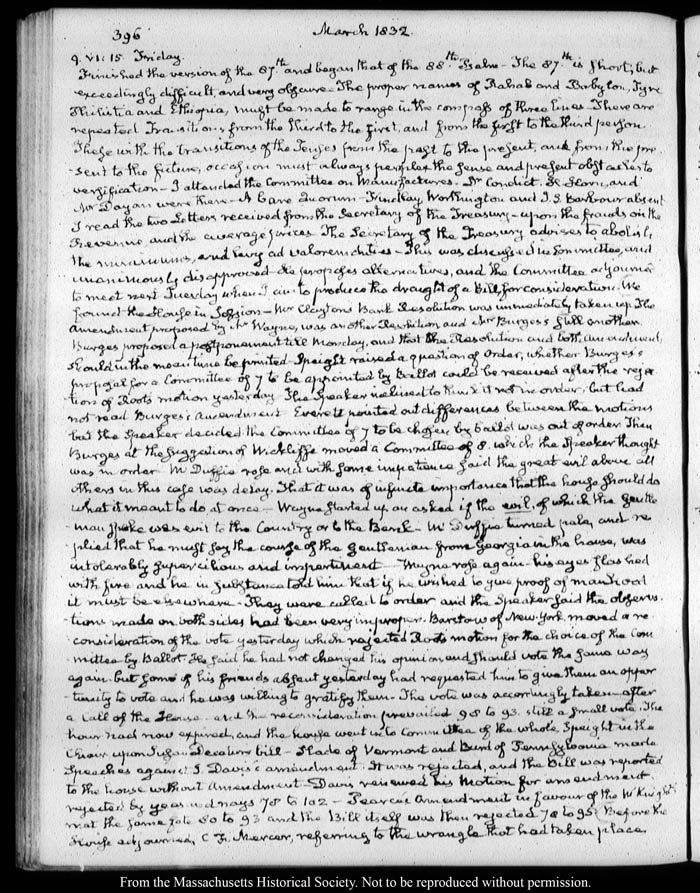 396
March 1832
9. VI:15 Friday.
Finished the version of the 87th and began that of the 88th Psalm – The 87th is short, but
exceedingly difficult, and very obscure – The proper names of Rahab and Babylon, Tyre
Philistia and Ethiopia, must be made to range in the compass of three lines – There are
repeated Transitions from the third to the first, and from the first to the third person.
These with the transitions of the Tenses from the past to the present, and from the pre-
sent to the future, occasion must always perplex the sense and present obstacles to
versification – I attended the Committee on Manufactures – Dr Condict, and
Mr Dayan were there – A bare Quorum – Findlay, Worthington and J. S. Barbour absent
I read the two Letters received from the Secretary of the Treasury – upon the frauds on the
Revenue, and the average prices. The Secretary of the Treasury advises to abolish,
the minimums, and levy ad valorem duties – This was discussed in Committee, and
unanimously disapproved – He proposes alternatives, and the Committee adjourned
to meet next Tuesday when I am to produce the draught of a Bill for consideration. We
found the House in Session – Mr Clayton's Bank Resolution was immediately taken up. The
Amendment proposed by Mr Wayne, was another Resolution and Mr Burges's still another.
Burges proposed a postponement till Monday, and that the Resolution and both amendments,
should in the mean time be printed – Speight raised a question of Order, whether Burges's
proposal for a Committee of 7 to be appointed by Ballot could be received after the rejec-
tion of Root's motion yesterday. The Speaker inclined to think it not in order, but had
not read Burges's Amendment. Everett pointed out differences between the motions
but the Speaker decided the Committee of 7 to be chosen by ballot was out of order. Then
Burges at the suggestion of Wickliffe moved a Committee of 8. which the Speaker thought
was in order – McDuffie rose and with some impatience said the great evil above all
others in this case was delay. That it was of infinite importance that the house should do
what it meant to do at once – Wayne started up an asked if the evil, of which the gentle-
man spoke was evil to the Country or to the Bank – McDuffie turned pale, and re-
plied that he must say the course of the gentleman from Georgia in the house, was
intolerably supercilious and impertinent – Wayne rose again – his eyes flashed
with fire and he in substance told him that if he wished to give proof of manhood
it must be elsewhere – They were called to order and the Speaker said the observa-
tions made on both sides had been very improper. Barstow of New York moved a re-
consideration of the vote yesterday which rejected Root's motion for the choice of the Com-
mittee by Ballot. He said he had not changed his opinion and should vote the same way
again. but some of his friends absent yesterday had requested him to give them an oppor-
tunity to vote and he was willing to gratify them – The vote was accordingly taken – after
a Call of the House – and the reconsideration prevailed 98 to 93. still a small vote. The
hour had now expired, and the house went into Committee of the whole, Speight in the
Chair upon Susan Decatur's bill – Slade of Vermont and Burd of Pennsylvania made
Speeches against J. Davis's amendment. It was rejected, and the bill was reported
to the house without Amendment – Davis renewed his Motion for amendment
rejected by yeas and nays 78 to 102 – Pearce's Amendment in favour of the McKnights
met the same fate 80 to 93 and the Bill itself was then rejected 78 to 95. Before the
House adjourned, C. F. Mercer, referring to the wrangle that had taken place
From the Massachusetts Historical Society. Not to be reproduced without permission.